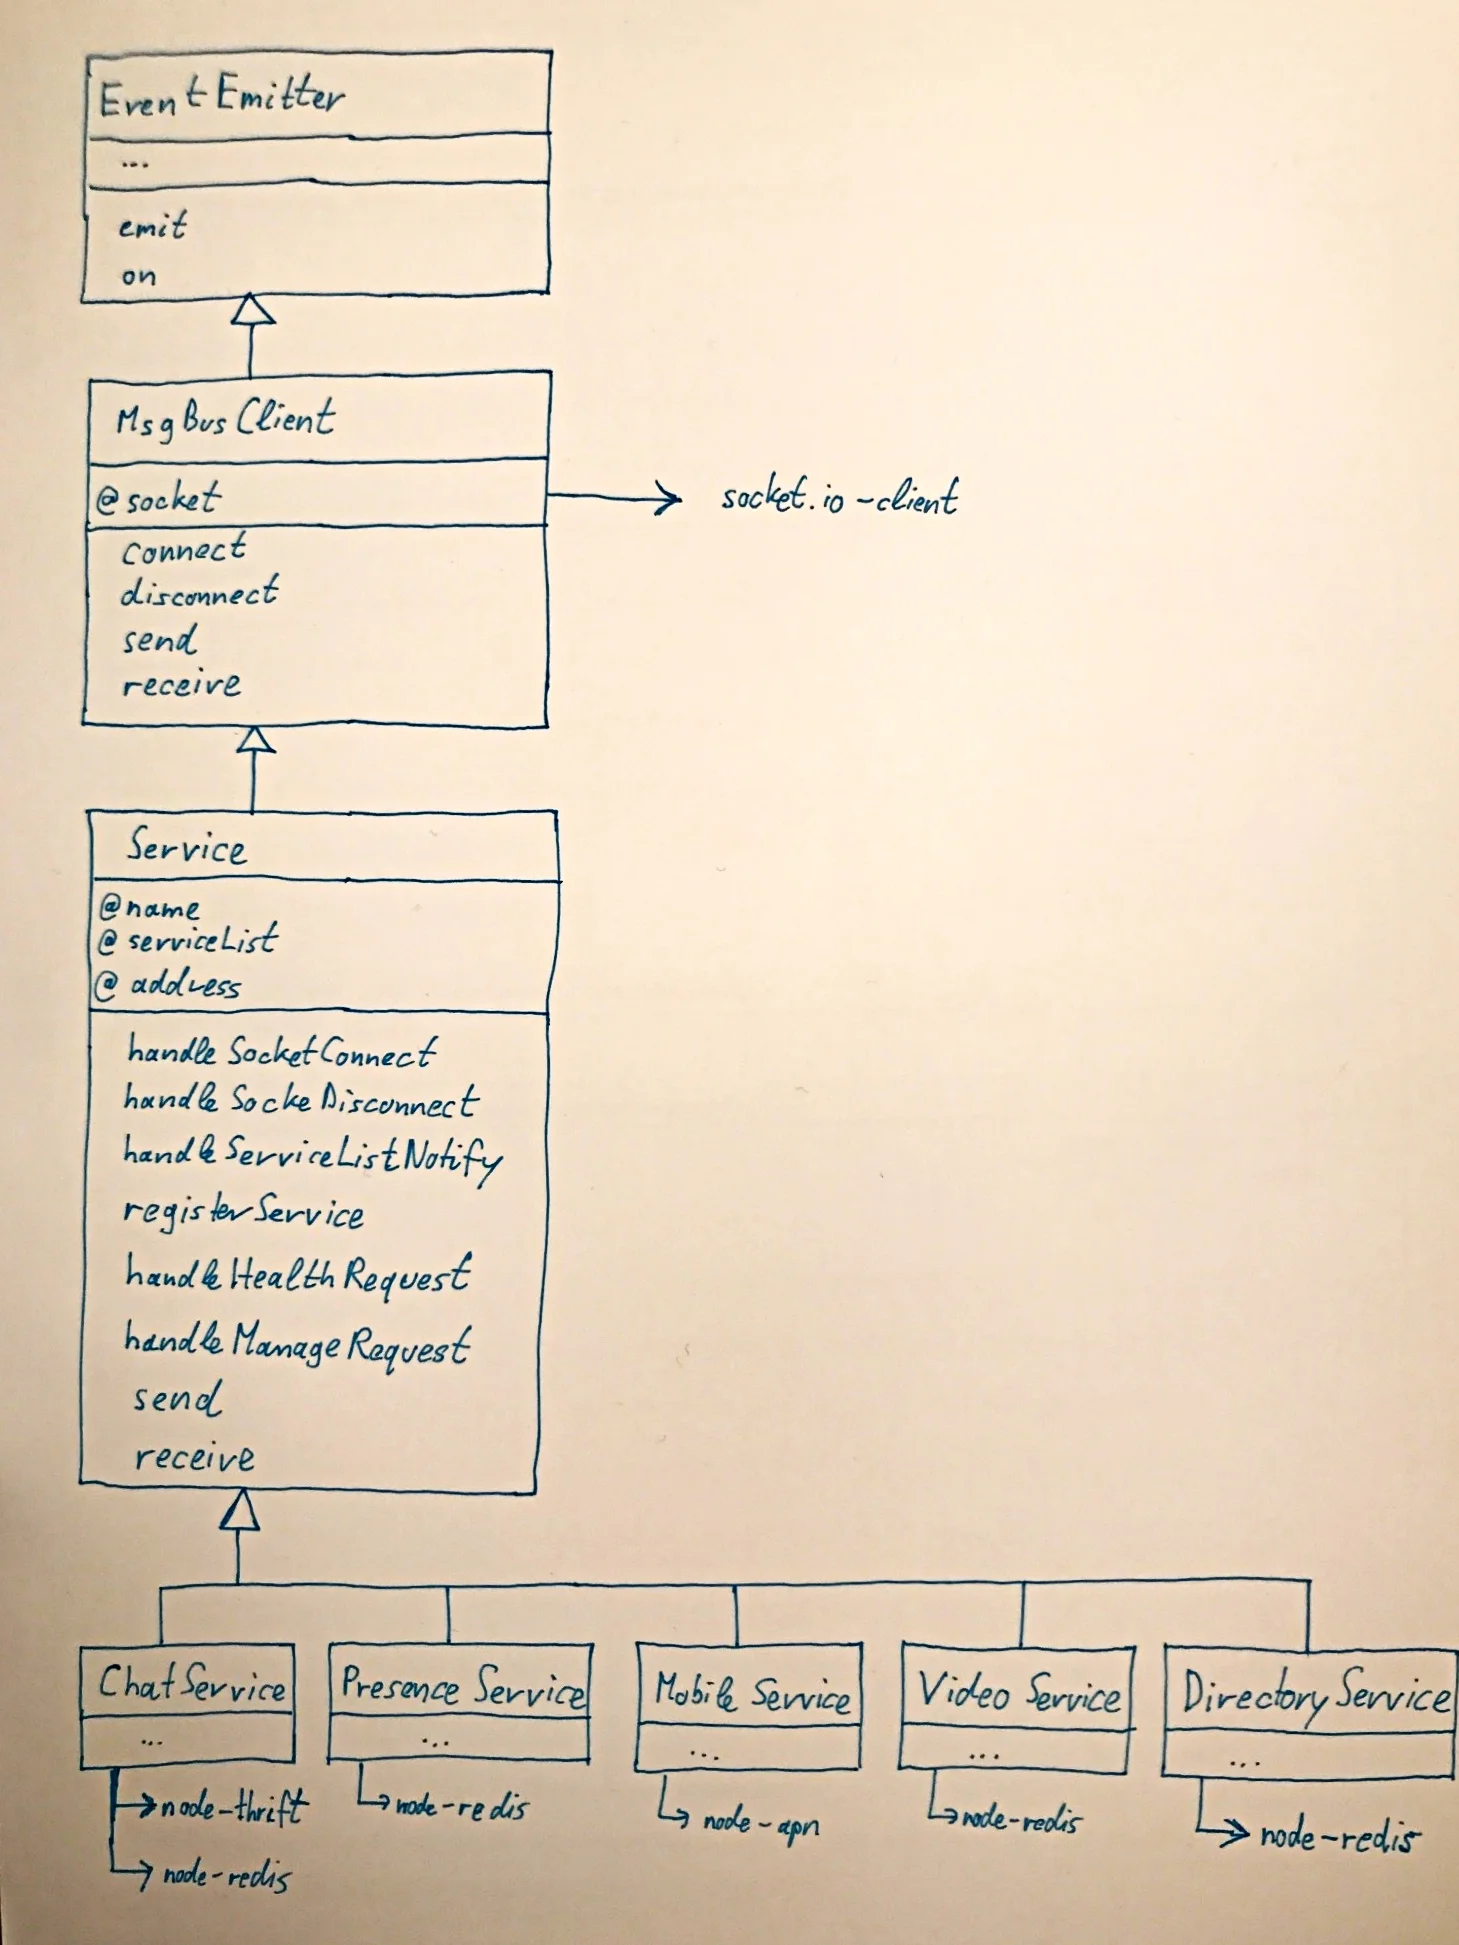 EventEmitter
...
emit
on
MsgBusClient
@socket
socket.io-client
connect
disconnect
send
receive
Service
@name
@serviceList
@address
handleSocketConnect
handleSockeDisconnect
handleServiceListNotify
registerService
handleHealthRequest
handleManageRequest
send
receive
ChatService
...
node-thrift
node-redis
Presence Service
...
node-redis
Mobile Service
...
node-apn
Video Service
...
node-redis
DirectoryService
...
node-redis